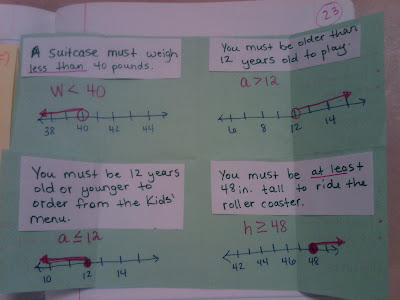 23
A suitcase must weigh
less than 40 pounds.
W < 40
38 40 42 44
You must be older than
12 years old to play.
a > 12
6 8 12 14
You must be 12 years
old or younger to
order from the Kids'
menu.
a ≤ 12
10 12 14
You must be at least
48 in. tall to ride the
roller coaster.
h ≥ 48
42 44 46 48